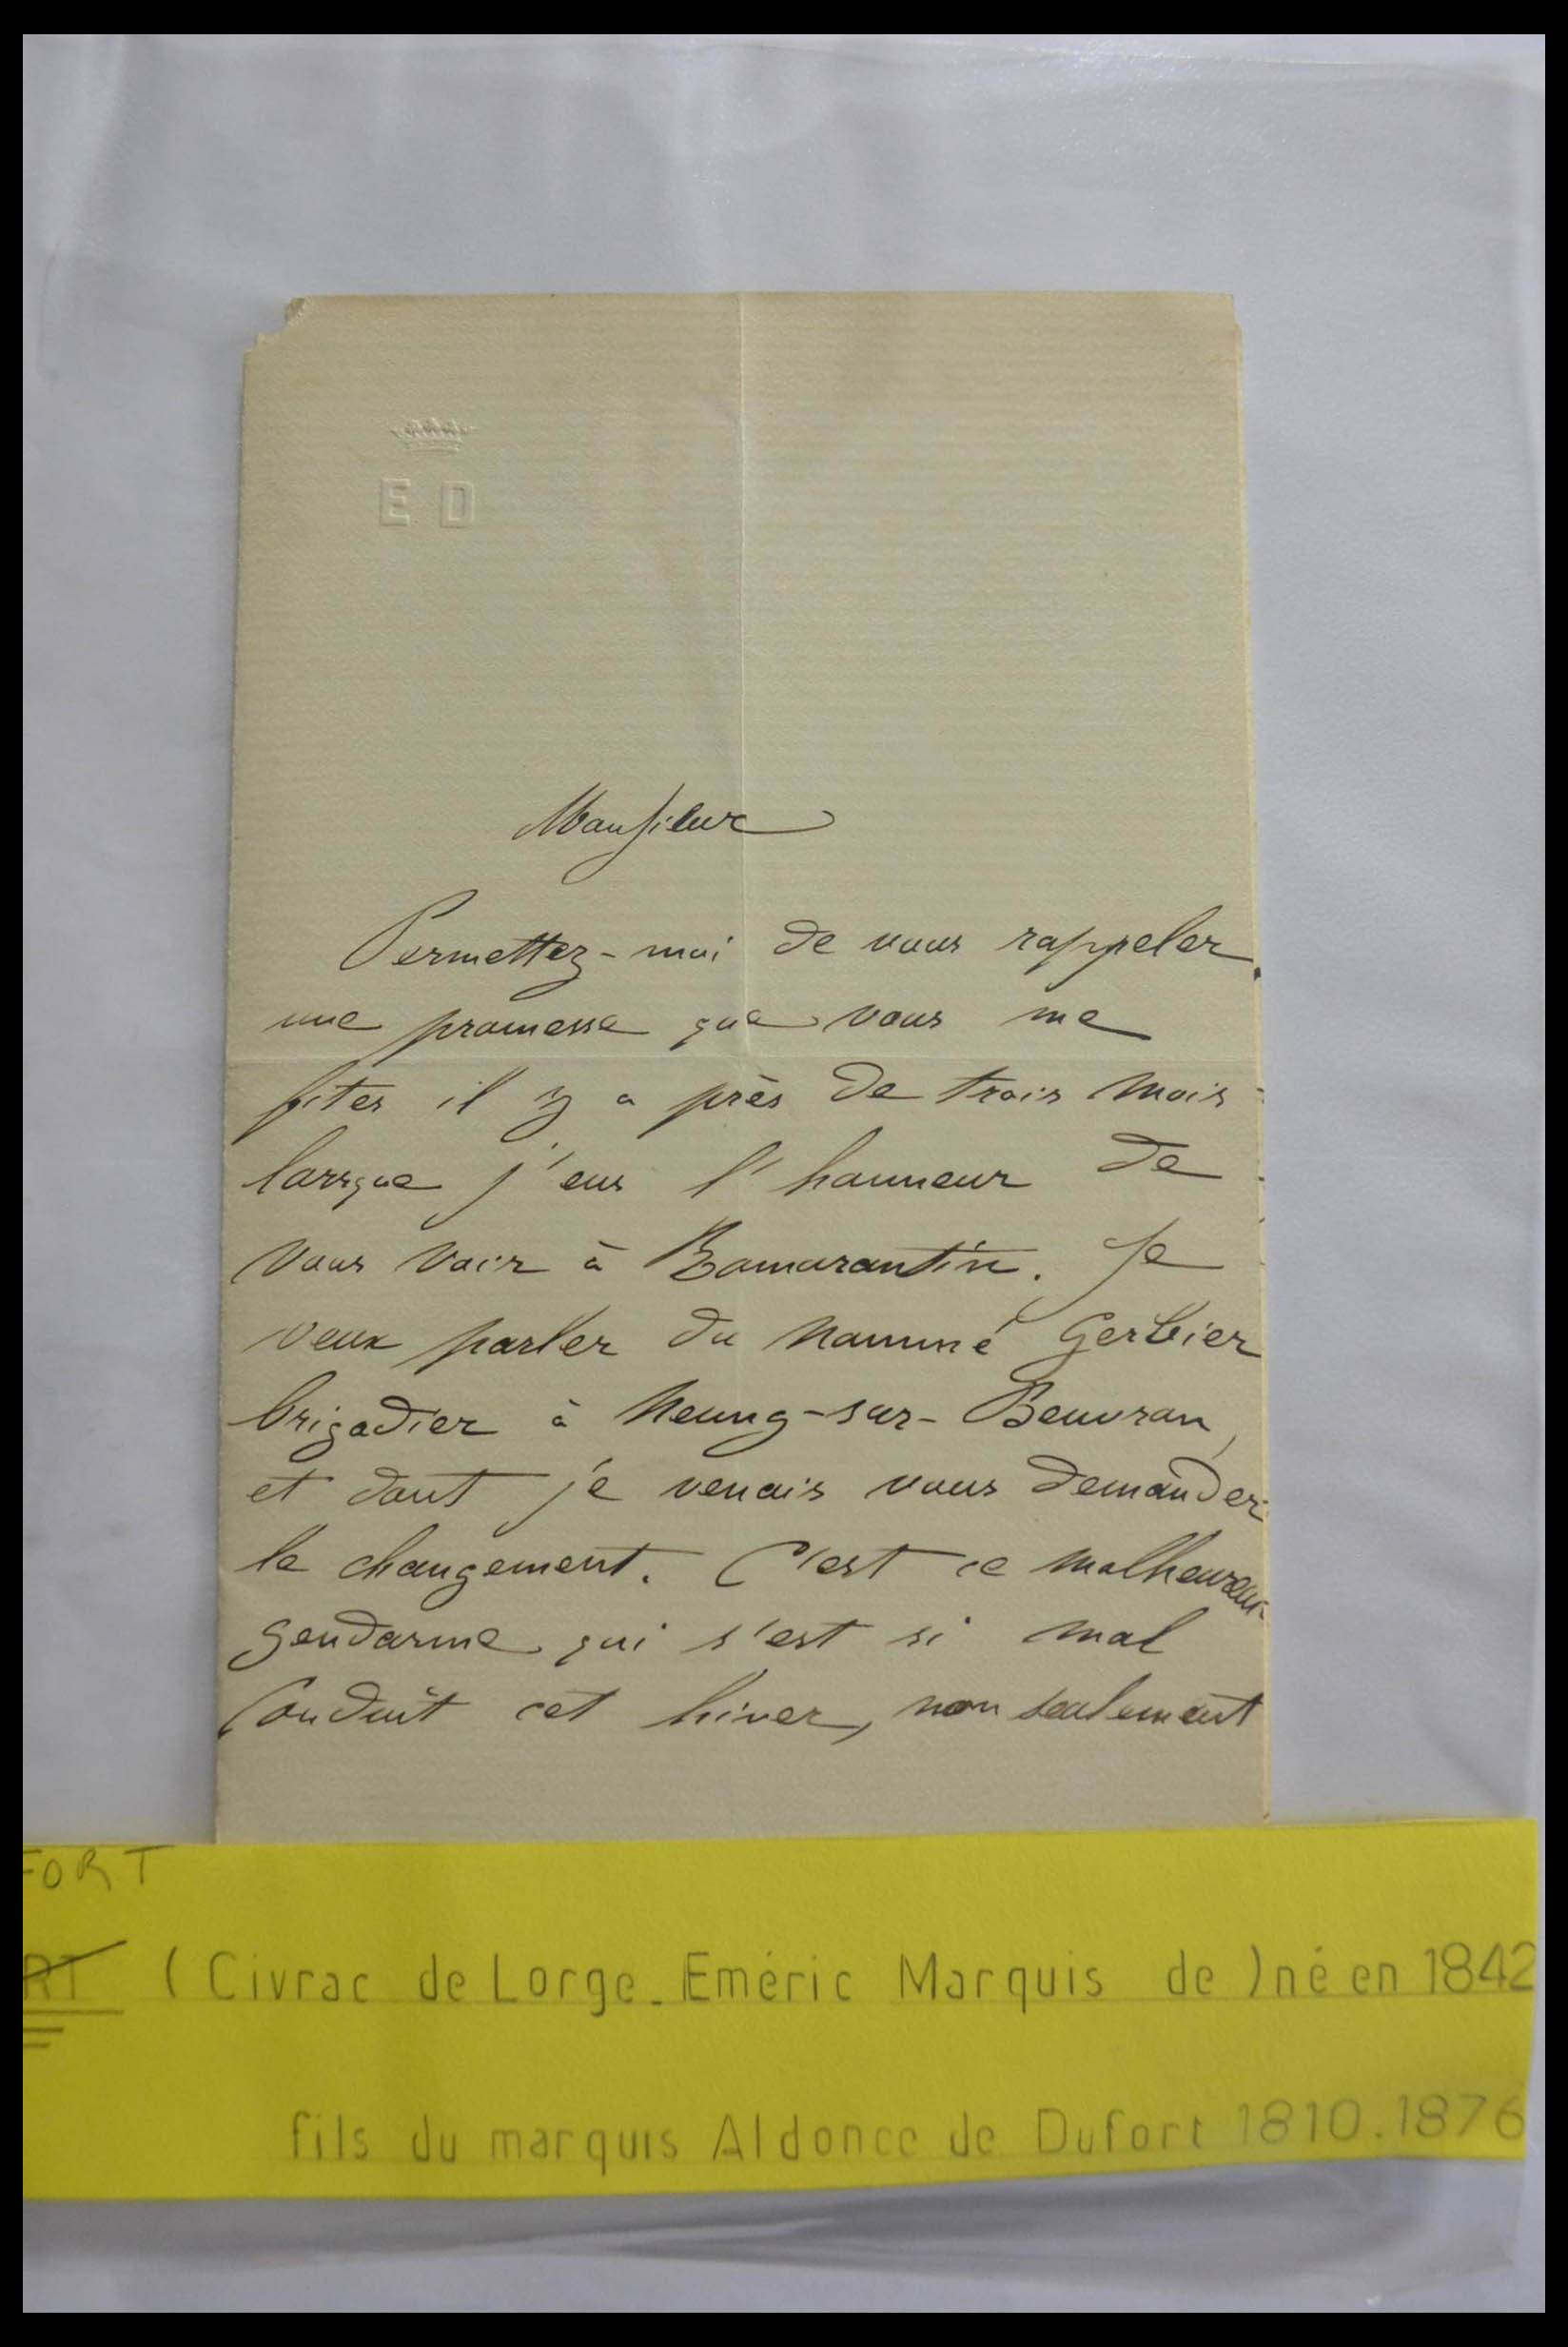 E D
Monsieur
Permettez-moi de vous rappeler
une promesse que vous me
fites il y a près de trois mois
lorsque j'eus l'honneur de
vous voir à Romorantin. Je
veux parler du nommé Gerbier
brigadier à Neung-sur-Beuvron,
et dont je venais vous demander
le changement. C'est ce malheureux
gendarme qui s'est si mal
conduit cet hiver, non seulement
FORT
RT (Civrac de Lorge_Eméric Marquis de) né en 1842
fils du marquis Aldonce de Dufort 1810.1876